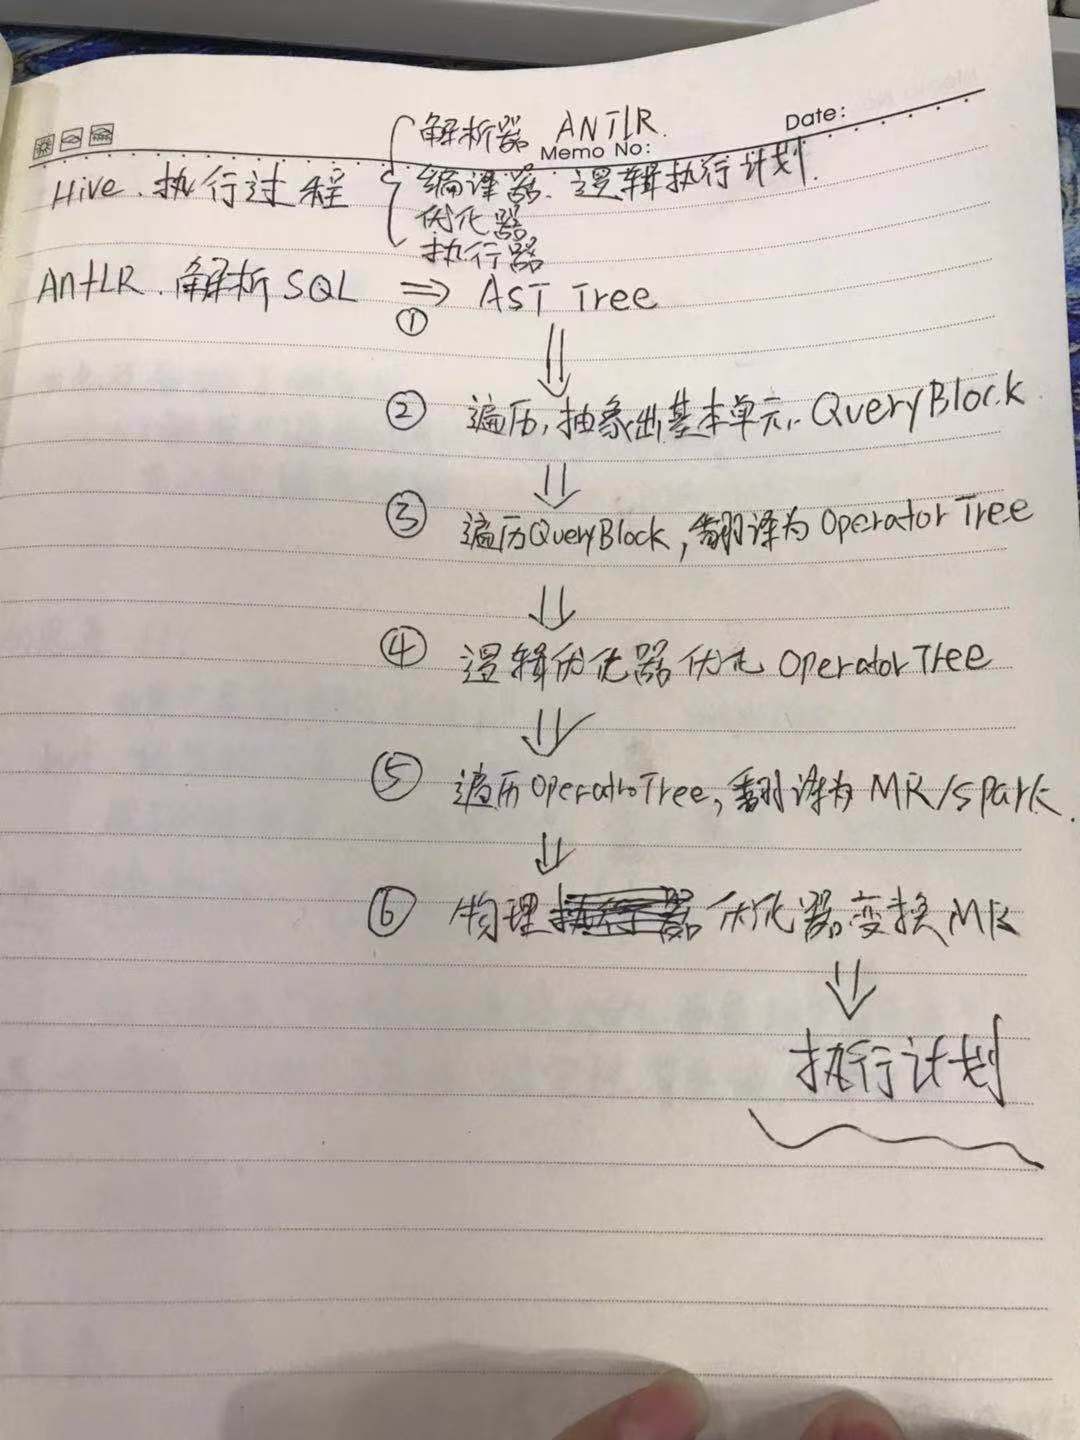 Date:
解析器 ANTLR.
Memo No:
Hive. 执行过程
编译器. 逻辑执行计划.
优化器
执行器
AntLR. 解析SQL ⇒ AST Tree
①
② 遍历, 抽象出基本单元. QueryBlock
③ 遍历QueryBlock, 翻译为 Operator Tree
④ 逻辑优化器优化 OperatorTree
⑤ 遍历OperatroTree, 翻译为 MR/Spark.
⑥ 物理 优化器变换MR
执行计划